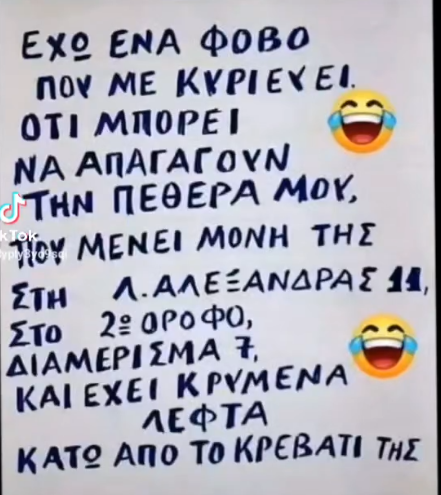 ΕΧΩ ΕΝΑ ΦΟΒΟ
ΠΟΥ ΜΕ ΚΥΡΙΕΥΕΙ.
ΟΤΙ ΜΠΟΡΕΙ
ΝΑ ΑΠΑΓΑΓΟΥΝ
ΤΗΝ ΠΕΘΕΡΑ ΜΟΥ,
ΠΟΥ ΜΕΝΕΙ ΜΟΝΗ ΤΗΣ
ΣΤΗ Λ.ΑΛΕΞΑΝΔΡΑΣ 11,
ΣΤΟ 2º ΟΡΟΦΟ,
ΔΙΑΜΕΡΙΣΜΑ 7,
ΚΑΙ ΕΧΕΙ ΚΡΥΜΕΝΑ
ΛΕΦΤΑ
ΚΑΤΩ ΑΠΟ ΤΟ ΚΡΕΒΑΤΙ ΤΗΣ
kTok